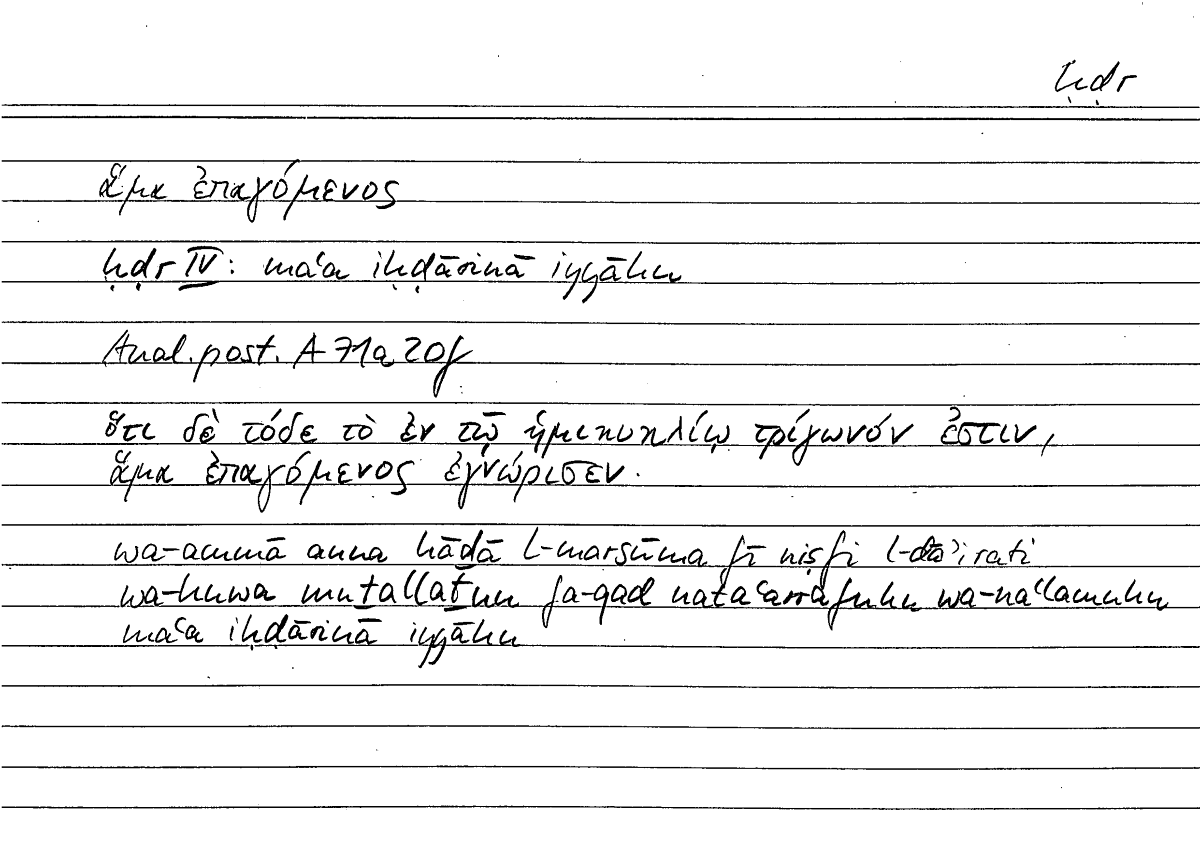 ḥḍr
ἅμα ἐπαγόμενος
ḥḍr IV: maʿa iḥḍārinā iyyāhu
Anal. post. A 71a 20f
ὅτι δὲ τόδε τὸ ἐν τῷ ἡμικυκλίῳ τρίγωνόν ἐστιν,
ἅμα ἐπαγόμενος ἐγνώρισεν.
wa-ammā anna hāḏā l-marsūma fī niṣfi l-dāʾirati
wa-huwa muṯallaṯun fa-qad nataʿarrafuhu wa-naʿlamuhu
maʿa iḥḍārinā iyyāhu